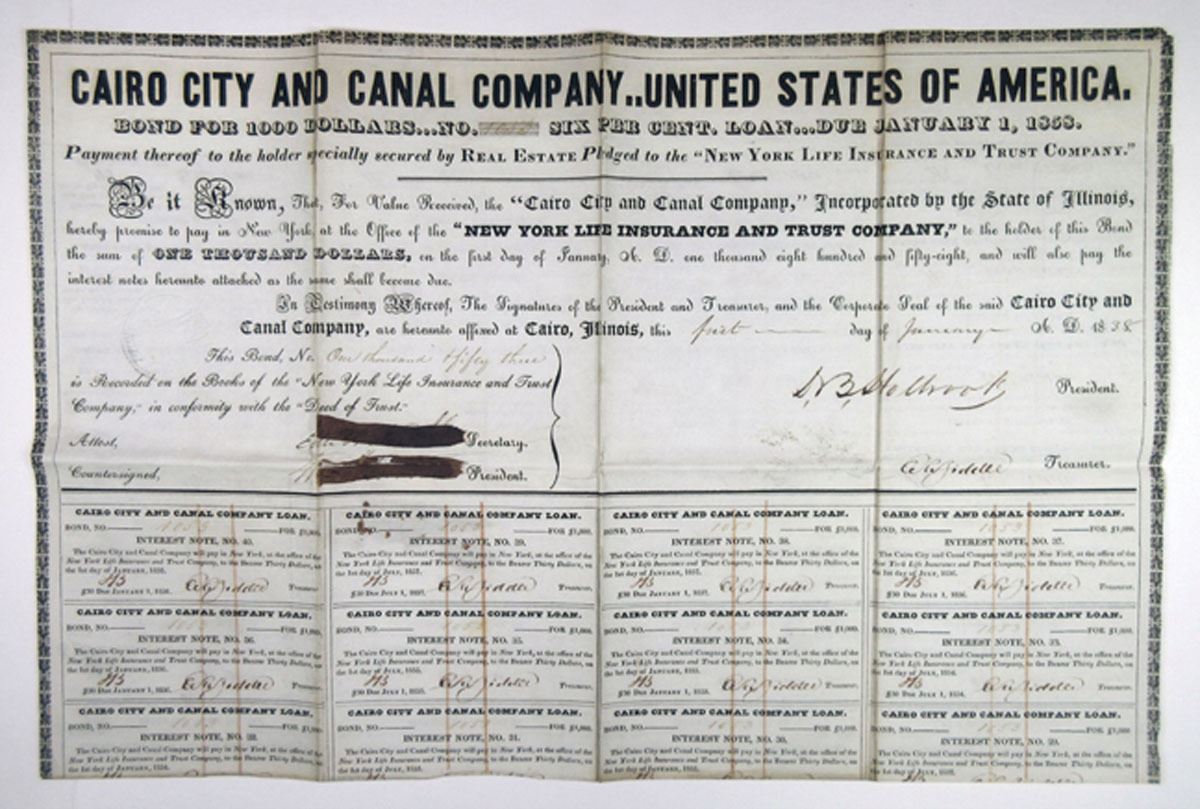 CAIRO CITY AND CANAL COMPANY..UNITED STATES OF AMERICA.
BOND FOR 1000 DOLLARS...NO. SIX PER CENT. LOAN...DUE JANUARY 1, 1858.
Payment thereof to the holder specially secured by REAL ESTATE Pledged to the "NEW YORK LIFE INSURANCE AND TRUST COMPANY."
Be it Known, That, For Value Received, the "Cairo City and Canal Company," Incorporated by the State of Illinois,
hereby promise to pay in New York, at the Office of the "NEW YORK LIFE INSURANCE AND TRUST COMPANY," to the holder of this Bond
the sum of ONE THOUSAND DOLLARS, on the first day of January, A. D. one thousand eight hundred and fifty-eight, and will also pay the
interest notes hereunto attached as the same shall become due.
In Testimony Whereof, The Signatures of the President and Treasurer, and the Corporate Seal of the said Cairo City and
Canal Company, are hereunto affixed at Cairo, Illinois, this first day of January A. D. 1838
This Bond, No. One thousand & fifty three
is Recorded on the Books of the "New York Life Insurance and Trust
Company," in conformity with the "Deed of Trust."
D. B. Holbrook President.
Attest, Secretary.
Treasurer.
Countersigned, President.
CAIRO CITY AND CANAL COMPANY LOAN. CAIRO CITY AND CANAL COMPANY LOAN. CAIRO CITY AND CANAL COMPANY LOAN. CAIRO CITY AND CANAL COMPANY LOAN.
BOND, NO. 1053 FOR $1,000. BOND, NO. 1053 FOR $1,000. BOND, NO. 1053 FOR $1,000. BOND, NO. 1053 FOR $1,000.
INTEREST NOTE, NO. 40. INTEREST NOTE, NO. 39. INTEREST NOTE, NO. 38. INTEREST NOTE, NO. 37.
The Cairo City and Canal Company will pay in New York, at the office of the The Cairo City and Canal Company will pay in New York, at the office of the The Cairo City and Canal Company will pay in New York, at the office of the The Cairo City and Canal Company will pay in New York, at the office of the
New York Life Insurance and Trust Company, to the Bearer Thirty Dollars, on New York Life Insurance and Trust Company, to the Bearer Thirty Dollars, on New York Life Insurance and Trust Company, to the Bearer Thirty Dollars, on New York Life Insurance and Trust Company, to the Bearer Thirty Dollars, on
the 1st day of JANUARY, 1858. the 1st day of JULY, 1857. the 1st day of JANUARY, 1857. the 1st day of JULY, 1856.
$30 DUE JANUARY 1, 1858. Treasurer. $30 DUE JULY 1, 1857. Treasurer. $30 DUE JANUARY 1, 1857. Treasurer. $30 DUE JULY 1, 1856. Treasurer.
CAIRO CITY AND CANAL COMPANY LOAN. CAIRO CITY AND CANAL COMPANY LOAN. CAIRO CITY AND CANAL COMPANY LOAN. CAIRO CITY AND CANAL COMPANY LOAN.
BOND, NO. 1053 FOR $1,000. BOND, NO. 1053 FOR $1,000. BOND, NO. 1053 FOR $1,000. BOND, NO. 1053 FOR $1,000.
INTEREST NOTE, NO. 36. INTEREST NOTE, NO. 35. INTEREST NOTE, NO. 34. INTEREST NOTE, NO. 33.
The Cairo City and Canal Company will pay in New York, at the office of the The Cairo City and Canal Company will pay in New York, at the office of the The Cairo City and Canal Company will pay in New York, at the office of the The Cairo City and Canal Company will pay in New York, at the office of the
New York Life Insurance and Trust Company, to the Bearer Thirty Dollars, on New York Life Insurance and Trust Company, to the Bearer Thirty Dollars, on New York Life Insurance and Trust Company, to the Bearer Thirty Dollars, on New York Life Insurance and Trust Company, to the Bearer Thirty Dollars, on
the 1st day of JANUARY, 1856. the 1st day of JULY, 1855. the 1st day of JANUARY, 1855. the 1st day of JULY, 1854.
$30 DUE JANUARY 1, 1856. Treasurer. $30 DUE JULY 1, 1855. Treasurer. $30 DUE JANUARY 1, 1855. Treasurer. $30 DUE JULY 1, 1854. Treasurer.
CAIRO CITY AND CANAL COMPANY LOAN. CAIRO CITY AND CANAL COMPANY LOAN. CAIRO CITY AND CANAL COMPANY LOAN. CAIRO CITY AND CANAL COMPANY LOAN.
BOND, NO. 1053 FOR $1,000. BOND, NO. 1053 FOR $1,000. BOND, NO. 1053 FOR $1,000. BOND, NO. 1053 FOR $1,000.
INTEREST NOTE, NO. 32. INTEREST NOTE, NO. 31. INTEREST NOTE, NO. 30. INTEREST NOTE, NO. 29.
The Cairo City and Canal Company will pay in New York, at the office of the The Cairo City and Canal Company will pay in New York, at the office of the The Cairo City and Canal Company will pay in New York, at the office of the The Cairo City and Canal Company will pay in New York, at the office of the
New York Life Insurance and Trust Company, to the Bearer Thirty Dollars, on New York Life Insurance and Trust Company, to the Bearer Thirty Dollars, on New York Life Insurance and Trust Company, to the Bearer Thirty Dollars, on New York Life Insurance and Trust Company, to the Bearer Thirty Dollars, on
the 1st day of JANUARY, 1854. the 1st day of JULY, 1853. the 1st day of JANUARY, 1853. the 1st day of JULY, 1852.